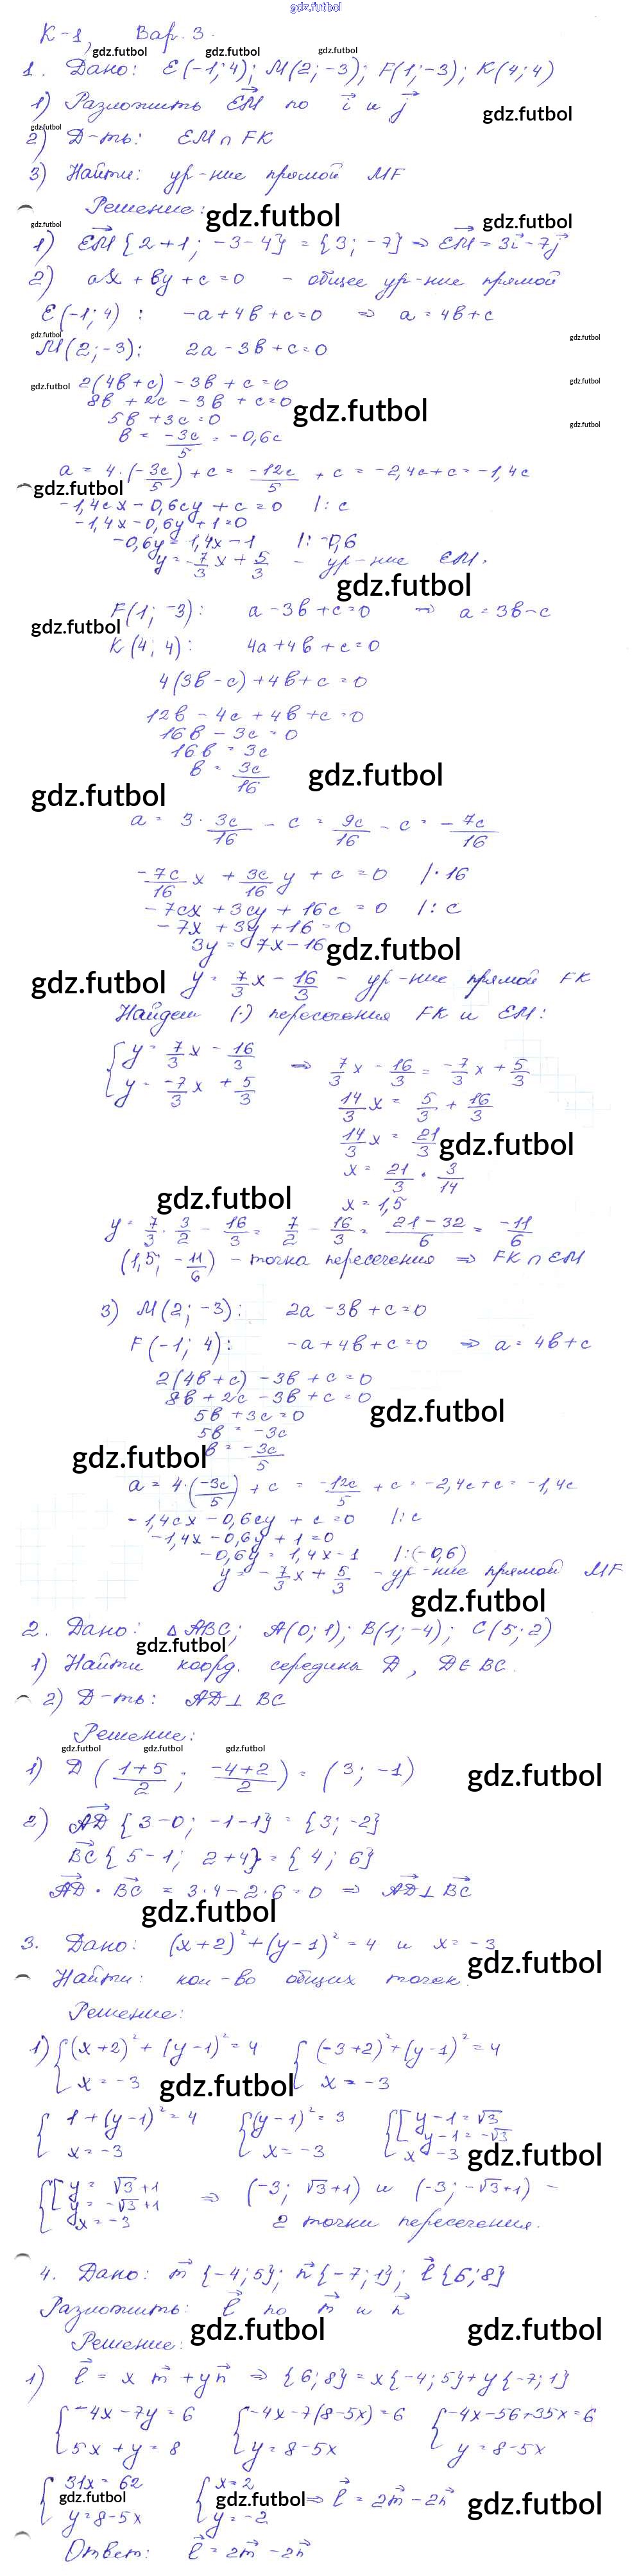 gdz.futbol
К-1, Вар. 3.
gdz.futbol gdz.futbol gdz.futbol
1. Дано: E(-1; 4); M(2; -3); F(1; -3); K(4; 4)
1) Разложить EM по i и j
gdz.futbol
gdz.futbol
2) Д-ть: EM ∩ FK
3) Найти: ур-ние прямой MF
Решение:
gdz.futbol
gdz.futbol gdz.futbol
1) EM {2+1; -3-4} = {3; -7} ⇒ EM = 3i - 7j
2) ax + by + c = 0 - общее ур-ние прямой
E(-1; 4) : -a + 4b + c = 0 ⇒ a = 4b + c
gdz.futbol gdz.futbol
M(2; -3): 2a - 3b + c = 0
gdz.futbol gdz.futbol
2(4b + c) - 3b + c = 0
8b + 2c - 3b + c = 0
gdz.futbol
5b + 3c = 0
gdz.futbol
b = -3c/5 = -0,6c
a = 4·(-3c/5) + c = -12c/5 + c = -2,4c + c = -1,4c
gdz.futbol
-1,4cx - 0,6cy + c = 0 /: c
-1,4x - 0,6y + 1 = 0
-0,6y = 1,4x - 1 /: -0,6
y = -7/3 x + 5/3 - ур-ние EM.
gdz.futbol
F(1; -3): a - 3b + c = 0 ⇒ a = 3b - c
gdz.futbol
K(4; 4): 4a + 4b + c = 0
4(3b - c) + 4b + c = 0
12b - 4c + 4b + c = 0
16b - 3c = 0
16b = 3c
b = 3c/16
gdz.futbol
gdz.futbol
a = 3 · 3c/16 - c = 9c/16 - c = -7c/16
-7c/16 x + 3c/16 y + c = 0 /· 16
-7cx + 3cy + 16c = 0 /: c
-7x + 3y + 16 = 0
3y = 7x - 16
gdz.futbol
gdz.futbol
y = 7/3 x - 16/3 - ур-ние прямой FK
Найдем (·) пересечения FK и EM:
{ y = 7/3 x - 16/3 ⇒ 7/3 x - 16/3 = -7/3 x + 5/3
y = -7/3 x + 5/3
14/3 x = 5/3 + 16/3
14/3 x = 21/3
gdz.futbol
x = 21/3 · 3/14
gdz.futbol
x = 1,5
y = 7/3 · 3/2 - 16/3 = 7/2 - 16/3 = 21-32/6 = -11/6
(1,5; -11/6) - точка пересечения ⇒ FK ∩ EM
3) M(2; -3): 2a - 3b + c = 0
F(-1; 4): -a + 4b + c = 0 ⇒ a = 4b + c
2(4b + c) - 3b + c = 0
8b + 2c - 3b + c = 0
5b + 3c = 0
gdz.futbol
5b = -3c
gdz.futbol
b = -3c/5
a = 4·(-3c/5) + c = -12c/5 + c = -2,4c + c = -1,4c
-1,4cx - 0,6cy + c = 0 /: c
-1,4x - 0,6y + 1 = 0
-0,6y = 1,4x - 1 /: (-0,6)
y = -7/3 x + 5/3 - ур-ние прямой MF
gdz.futbol
2. Дано: △ABC; A(0; 1); B(1; -4); C(5; 2)
gdz.futbol
1) Найти коорд. середины D, D∈BC.
2) Д-ть: AD ⊥ BC
Решение:
gdz.futbol gdz.futbol gdz.futbol
1) D(1+5/2; -4+2/2) = (3; -1)
gdz.futbol
2) AD {3-0; -1-1} = {3; -2}
BC {5-1; 2+4} = {4; 6}
AD · BC = 3·4 - 2·6 = 0 ⇒ AD ⊥ BC
gdz.futbol
3. Дано: (x+2)² + (y-1)² = 4 и x = -3
gdz.futbol
Найти: кол-во общих точек.
Решение:
1) { (x+2)² + (y-1)² = 4 { (-3+2)² + (y-1)² = 4
x = -3 x = -3
gdz.futbol
{ 1 + (y-1)² = 4 { (y-1)² = 3 { [ y-1 = √3
y-1 = -√3
x = -3 x = -3 x = -3
gdz.futbol
{ [ y = √3+1 ⇒ (-3; √3+1) и (-3; -√3+1) -
y = -√3+1
x = -3 2 точки пересечения.
4. Дано: m {-4; 5}; n {-7; 1}; l {6; 8}
Разложить: l по m и n
gdz.futbol gdz.futbol
Решение:
1) l = x m + y n ⇒ {6; 8} = x{-4; 5} + y{-7; 1}
{ -4x - 7y = 6 { -4x - 7(8-5x) = 6 { -4x - 56 + 35x = 6
5x + y = 8 y = 8 - 5x y = 8 - 5x
{ 31x = 62 { x = 2 ⇒ l = 2m - 2n
gdz.futbol gdz.futbol gdz.futbol
y = 8 - 5x y = -2
Ответ: l = 2m - 2n